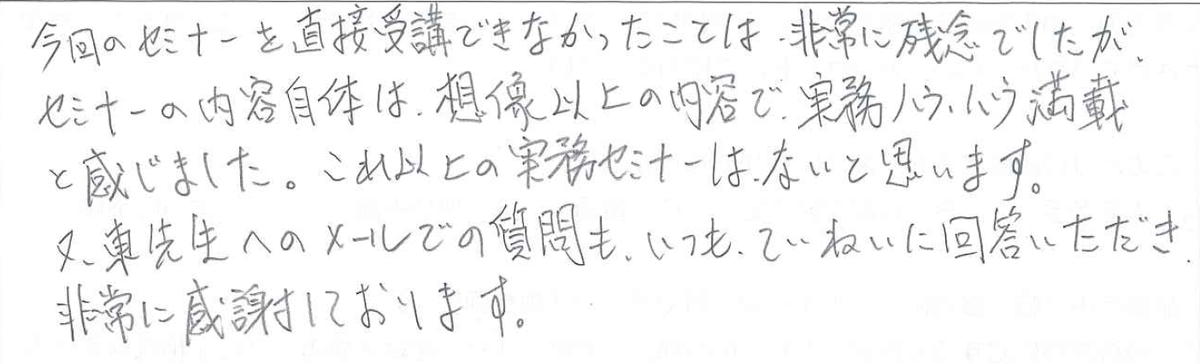 今回のセミナーを直接受講できなかったことは、非常に残念でしたが、
セミナーの内容自体は、想像以上の内容で、実務ノウ、ハウ満載
と感じました。これ以上の実務セミナーは、ないと思います。
又、東先生へのメールでの質問も、いつも、ていねいに回答いただき、
非常に感謝しております。